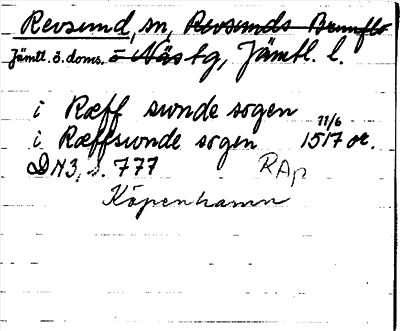 Revsund, sn, Revsunds Brunflo
Jämtl. ö. doms. o Näs tg, Jämtl. l.
i Ræff sunde sogen
i Ræffsunde sogen 11/6 1517 or.
DN3, s. 777 RAp
Köpenhamn